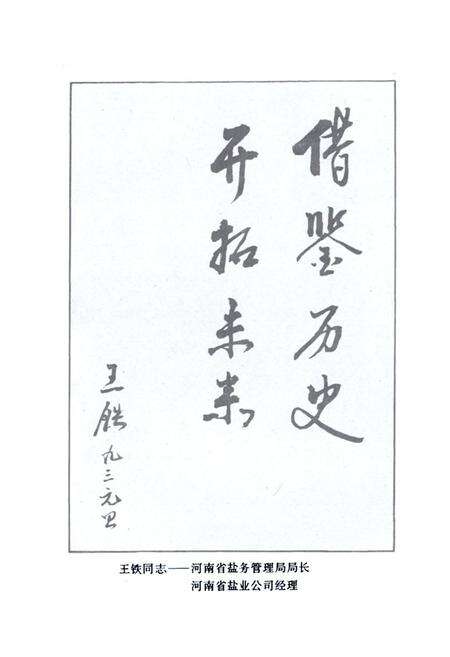 借鉴历史
开拓未来
王铁 九三元旦
王铁同志——河南省盐务管理局局长
河南省盐业公司经理